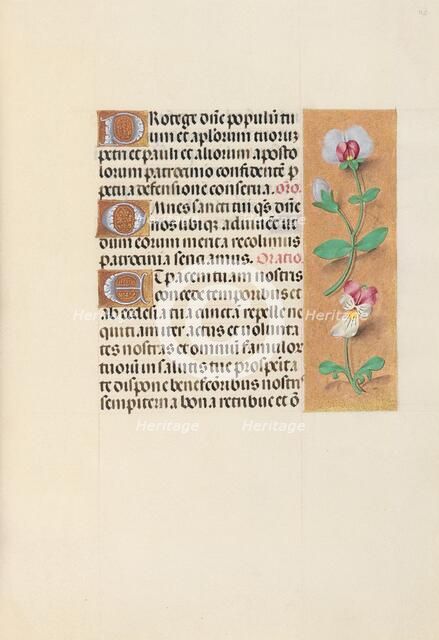 Protege dñe populũ tu
um et aplorum tuorum
petri et pauli et aliorum aposto
lorum patrocinio confidentẽ p
petua defensione conserua. Oro.
Omnes sancti tui qs dñe
nos ubiqʒ adiuuent ut
dum eorum merita recolimus
patrocinia senciamus. Oratio.
Et pacem tuam nostris
concede temporibus et
ab ecclesia tua cuncta repelle ne
quitiam iter actus et uolunta
tes nostras et omniũ famulor
tuorum in salutis tue prosperita
te dispone benefcoribus nostris
sempiterna bona retribue et õ
Heritage Heritage
Heritage Heritage